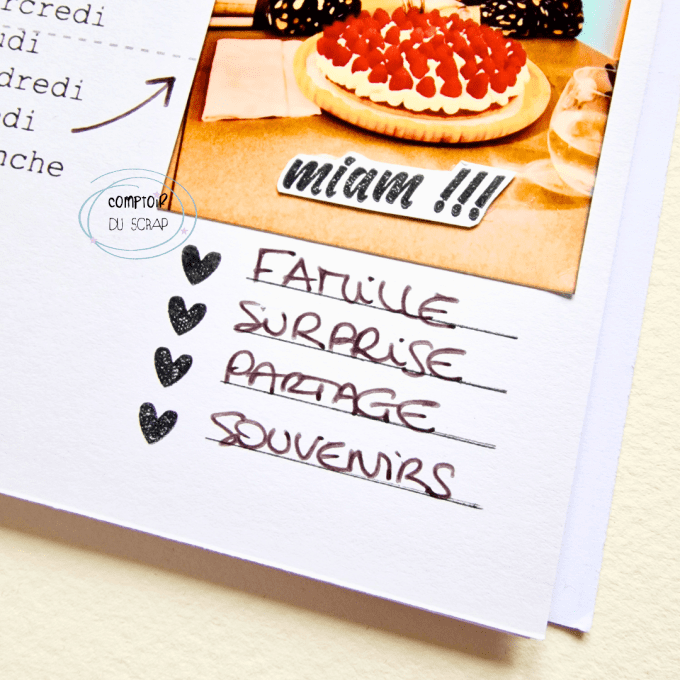 rcredi
udi
dredi
edi
nche
COMPTOIR
DU SCRAP
miam !!!
FAMILLE
SURPRISE
PARTAGE
SOUVENIRS